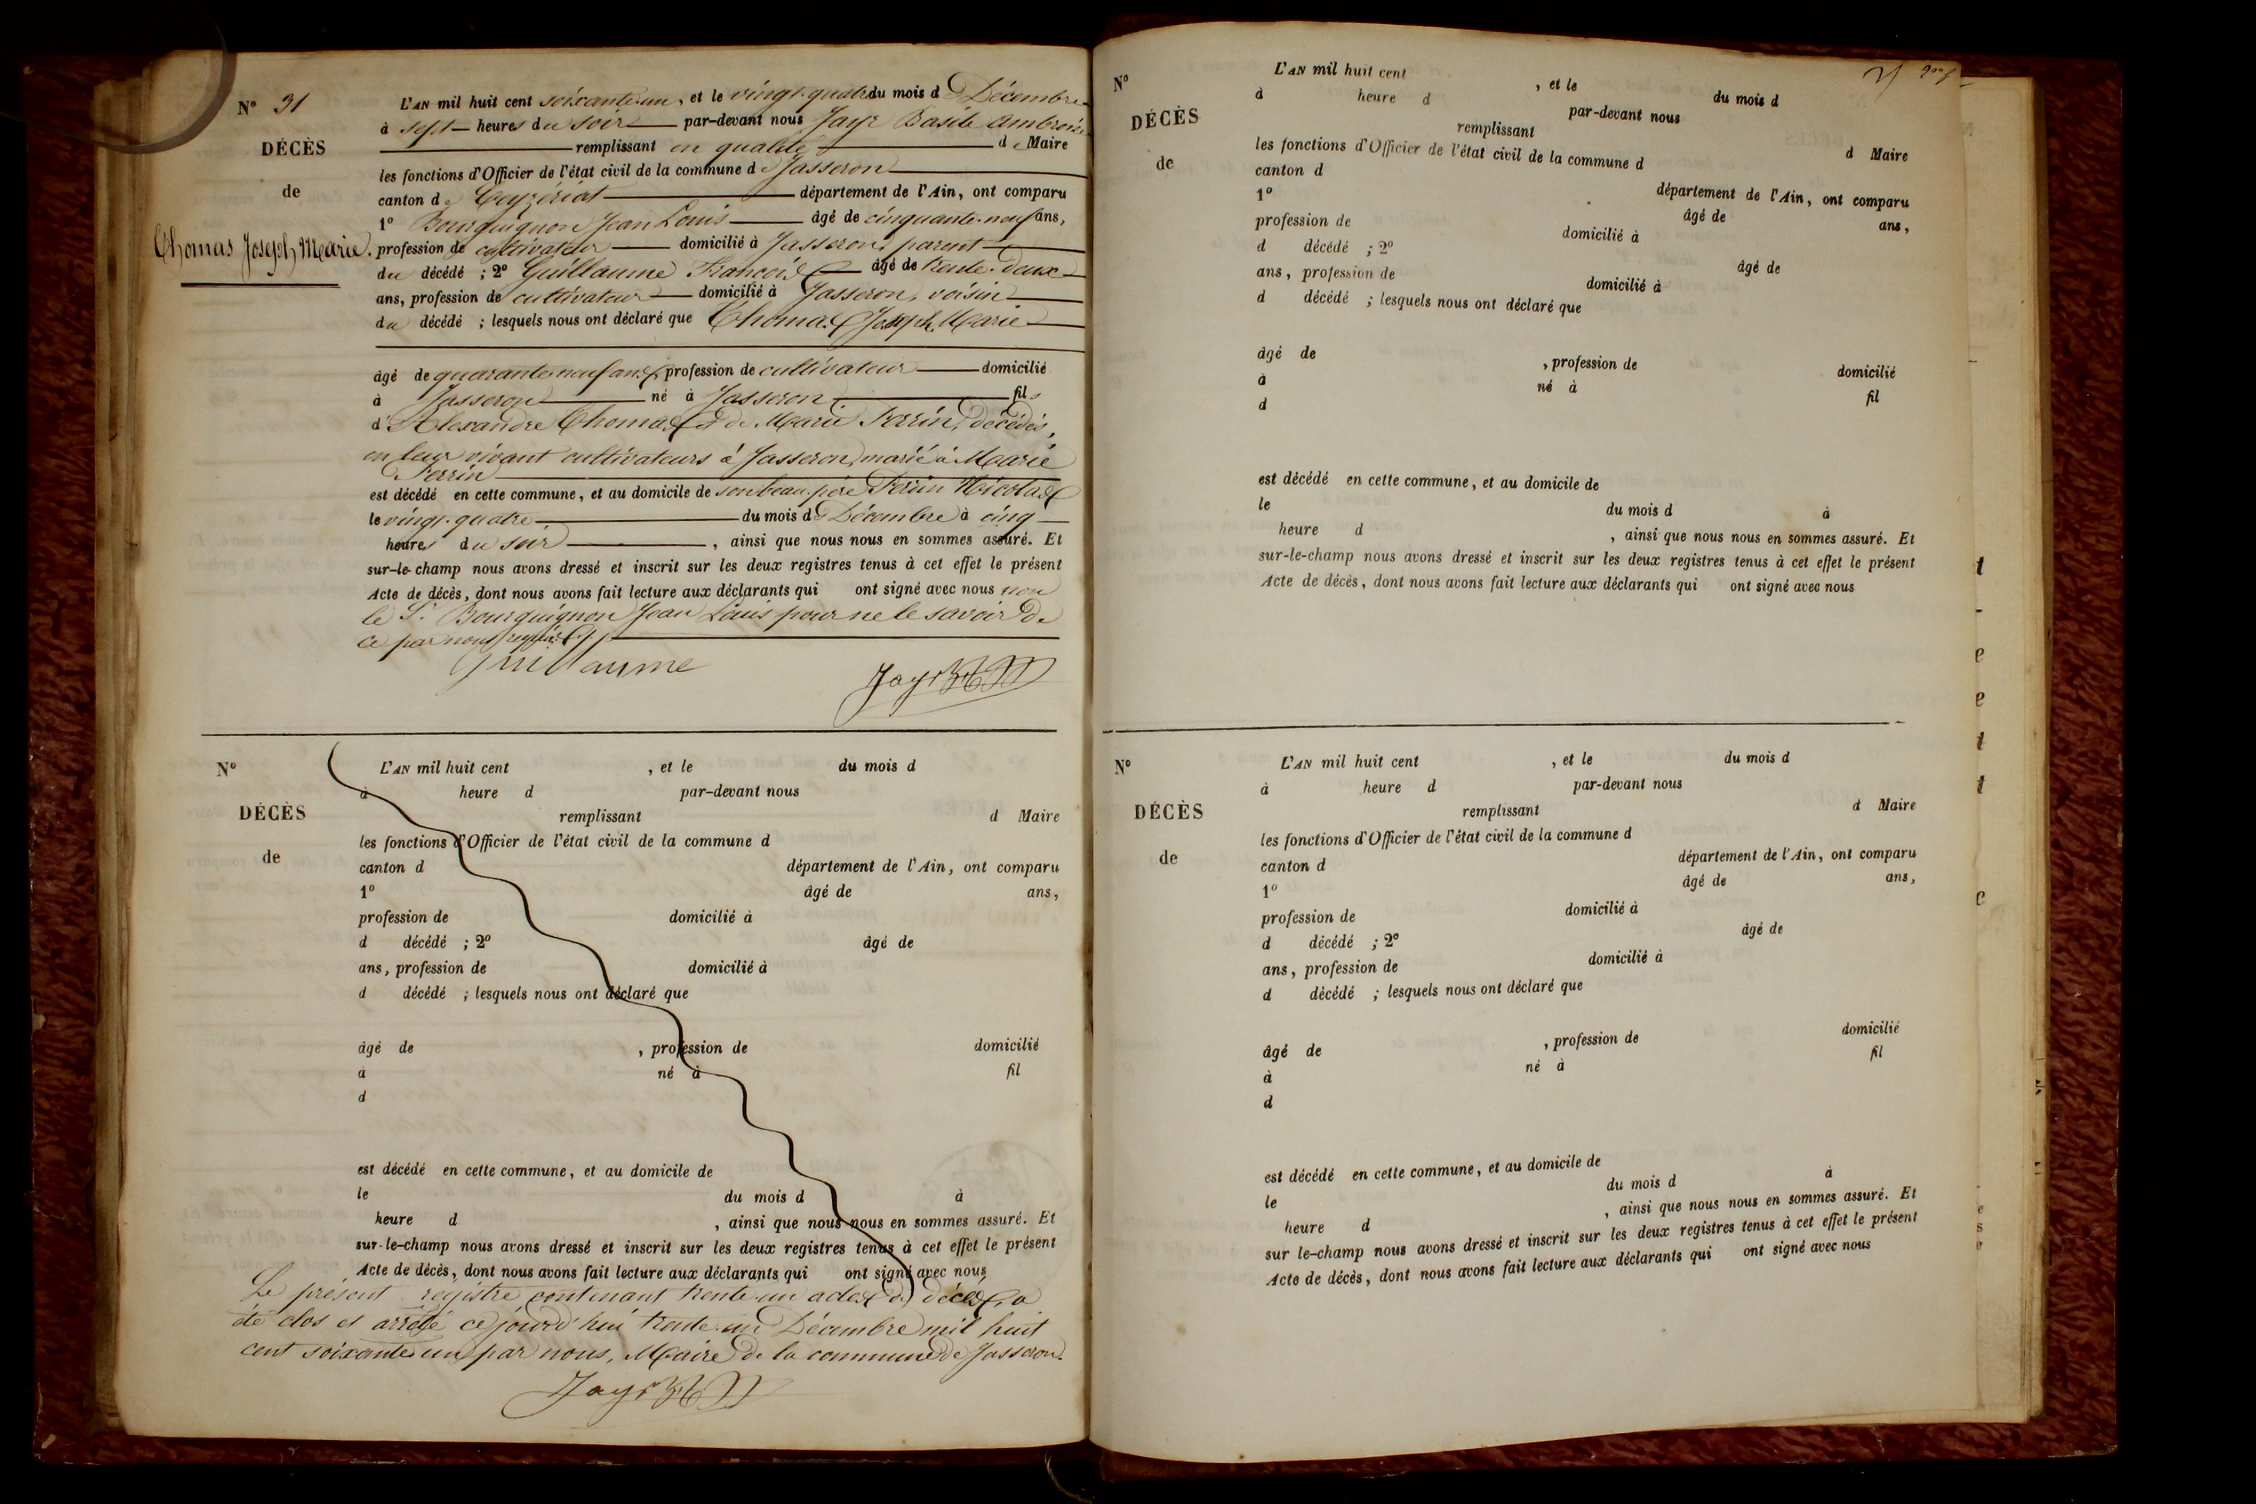 N° 31
DÉCÈS
de
Thomas Joseph Marie.
L'AN mil huit cent soixante un, et le vingt-quatre du mois de Décembre
à sept heures du soir par-devant nous Jayr Basile Ambroise
remplissant en qualité de Maire
les fonctions d'Officier de l'état civil de la commune de Jasseron
canton de Ceyzériat département de l'Ain, ont comparu
1° Bourguignon Jean Louis âgé de cinquante-neuf ans,
profession de cultivateur domicilié à Jasseron, parent
du décédé ; 2° Guillaume François âgé de trente-deux
ans, profession de cultivateur domicilié à Jasseron, voisin
du décédé ; lesquels nous ont déclaré que Thomas Joseph Marie
âgé de quarante neuf ans, profession de cultivateur domicilié
à Jasseron né à Jasseron fils
d'Alexandre Thomas et de Marie Perrin, décédés,
en leur vivant cultivateurs à Jasseron, marié à Marie
Perrin
est décédé en cette commune, et au domicile de son beau-père Perrin Nicolas
le vingt-quatre du mois de Décembre à cinq
heures du soir, ainsi que nous nous en sommes assuré. Et
sur-le-champ nous avons dressé et inscrit sur les deux registres tenus à cet effet le présent
Acte de décès, dont nous avons fait lecture aux déclarants qui ont signé avec nous non
le Sr Bourguignon Jean Louis pour ne le savoir de
ce par nous requis.
Guillaume
Jayr
N°
DÉCÈS
de
L'AN mil huit cent , et le du mois d
à heure d par-devant nous
remplissant d Maire
les fonctions d'Officier de l'état civil de la commune d
canton d département de l'Ain, ont comparu
1° âgé de ans,
profession de domicilié à
d décédé ; 2° âgé de
ans, profession de domicilié à
d décédé ; lesquels nous ont déclaré que
âgé de , profession de domicilié
à né à fil
d
est décédé en cette commune, et au domicile de
le du mois d à
heure d , ainsi que nous nous en sommes assuré. Et
sur-le-champ nous avons dressé et inscrit sur les deux registres tenus à cet effet le présent
Acte de décès, dont nous avons fait lecture aux déclarants qui ont signé avec nous
Le présent registre contenant trente-un actes de décès, a
été clos et arrêté ce jourd'hui trente-un Décembre mil huit
cent soixante-un par nous, Maire de la commune de Jasseron.
Jayr
N°
DÉCÈS
de
L'AN mil huit cent , et le du mois d
à heure d par-devant nous
remplissant d Maire
les fonctions d'Officier de l'état civil de la commune d
canton d département de l'Ain, ont comparu
1° âgé de ans,
profession de domicilié à
d décédé ; 2° âgé de
ans, profession de domicilié à
d décédé ; lesquels nous ont déclaré que
âgé de , profession de domicilié
à né à fil
d
est décédé en cette commune, et au domicile de
le du mois d à
heure d , ainsi que nous nous en sommes assuré. Et
sur-le-champ nous avons dressé et inscrit sur les deux registres tenus à cet effet le présent
Acte de décès, dont nous avons fait lecture aux déclarants qui ont signé avec nous
N°
DÉCÈS
de
L'AN mil huit cent , et le du mois d
à heure d par-devant nous
remplissant d Maire
les fonctions d'Officier de l'état civil de la commune d
canton d département de l'Ain, ont comparu
1° âgé de ans,
profession de domicilié à
d décédé ; 2° âgé de
ans, profession de domicilié à
d décédé ; lesquels nous ont déclaré que
âgé de , profession de domicilié
à né à fil
d
est décédé en cette commune, et au domicile de
le du mois d à
heure d , ainsi que nous nous en sommes assuré. Et
sur le-champ nous avons dressé et inscrit sur les deux registres tenus à cet effet le présent
Acte de décès, dont nous avons fait lecture aux déclarants qui ont signé avec nous